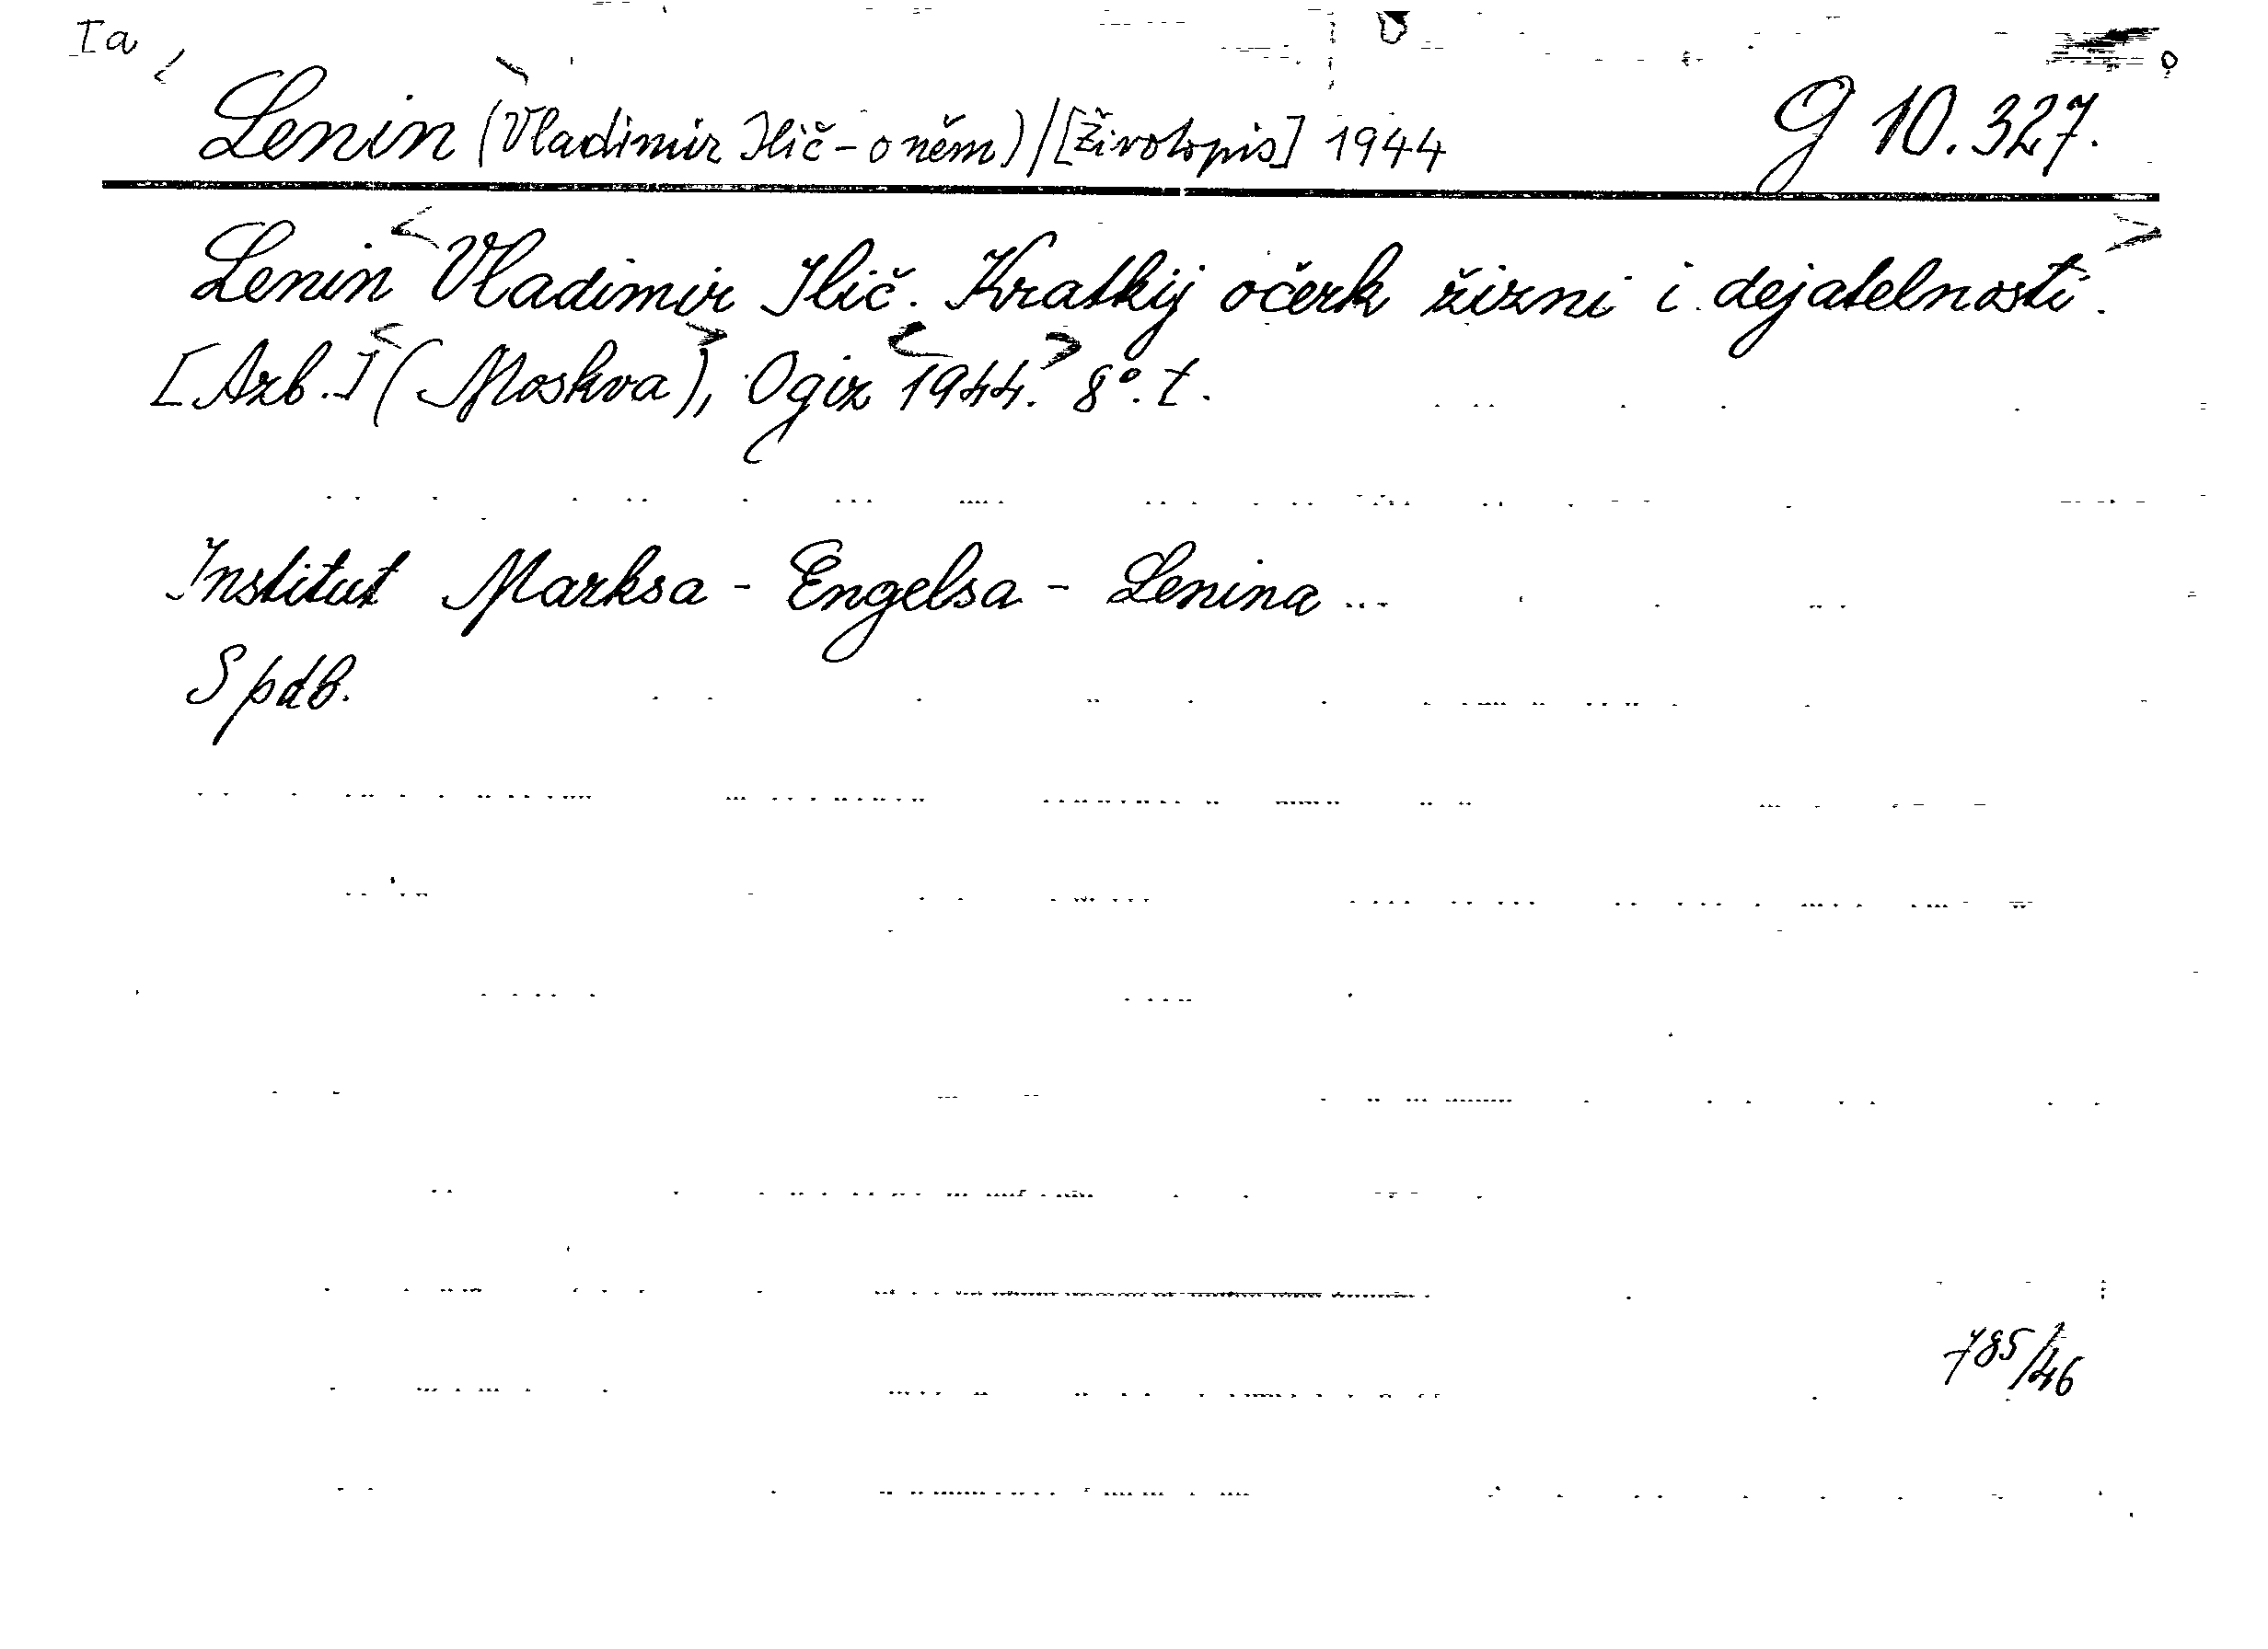 Ia
Lenin (Vladimir Ilič - o něm) / [Životopis] 1944 G 10.327.
Lenin <Vladimir Ilič. Kratkij očerk žizni i dejatelnosti.>
[Azb.] <(Moskva)>, Ogiz <1944.> 8°. t.
Institut Marksa - Engelsa - Lenina ...
S pdb.
785/46